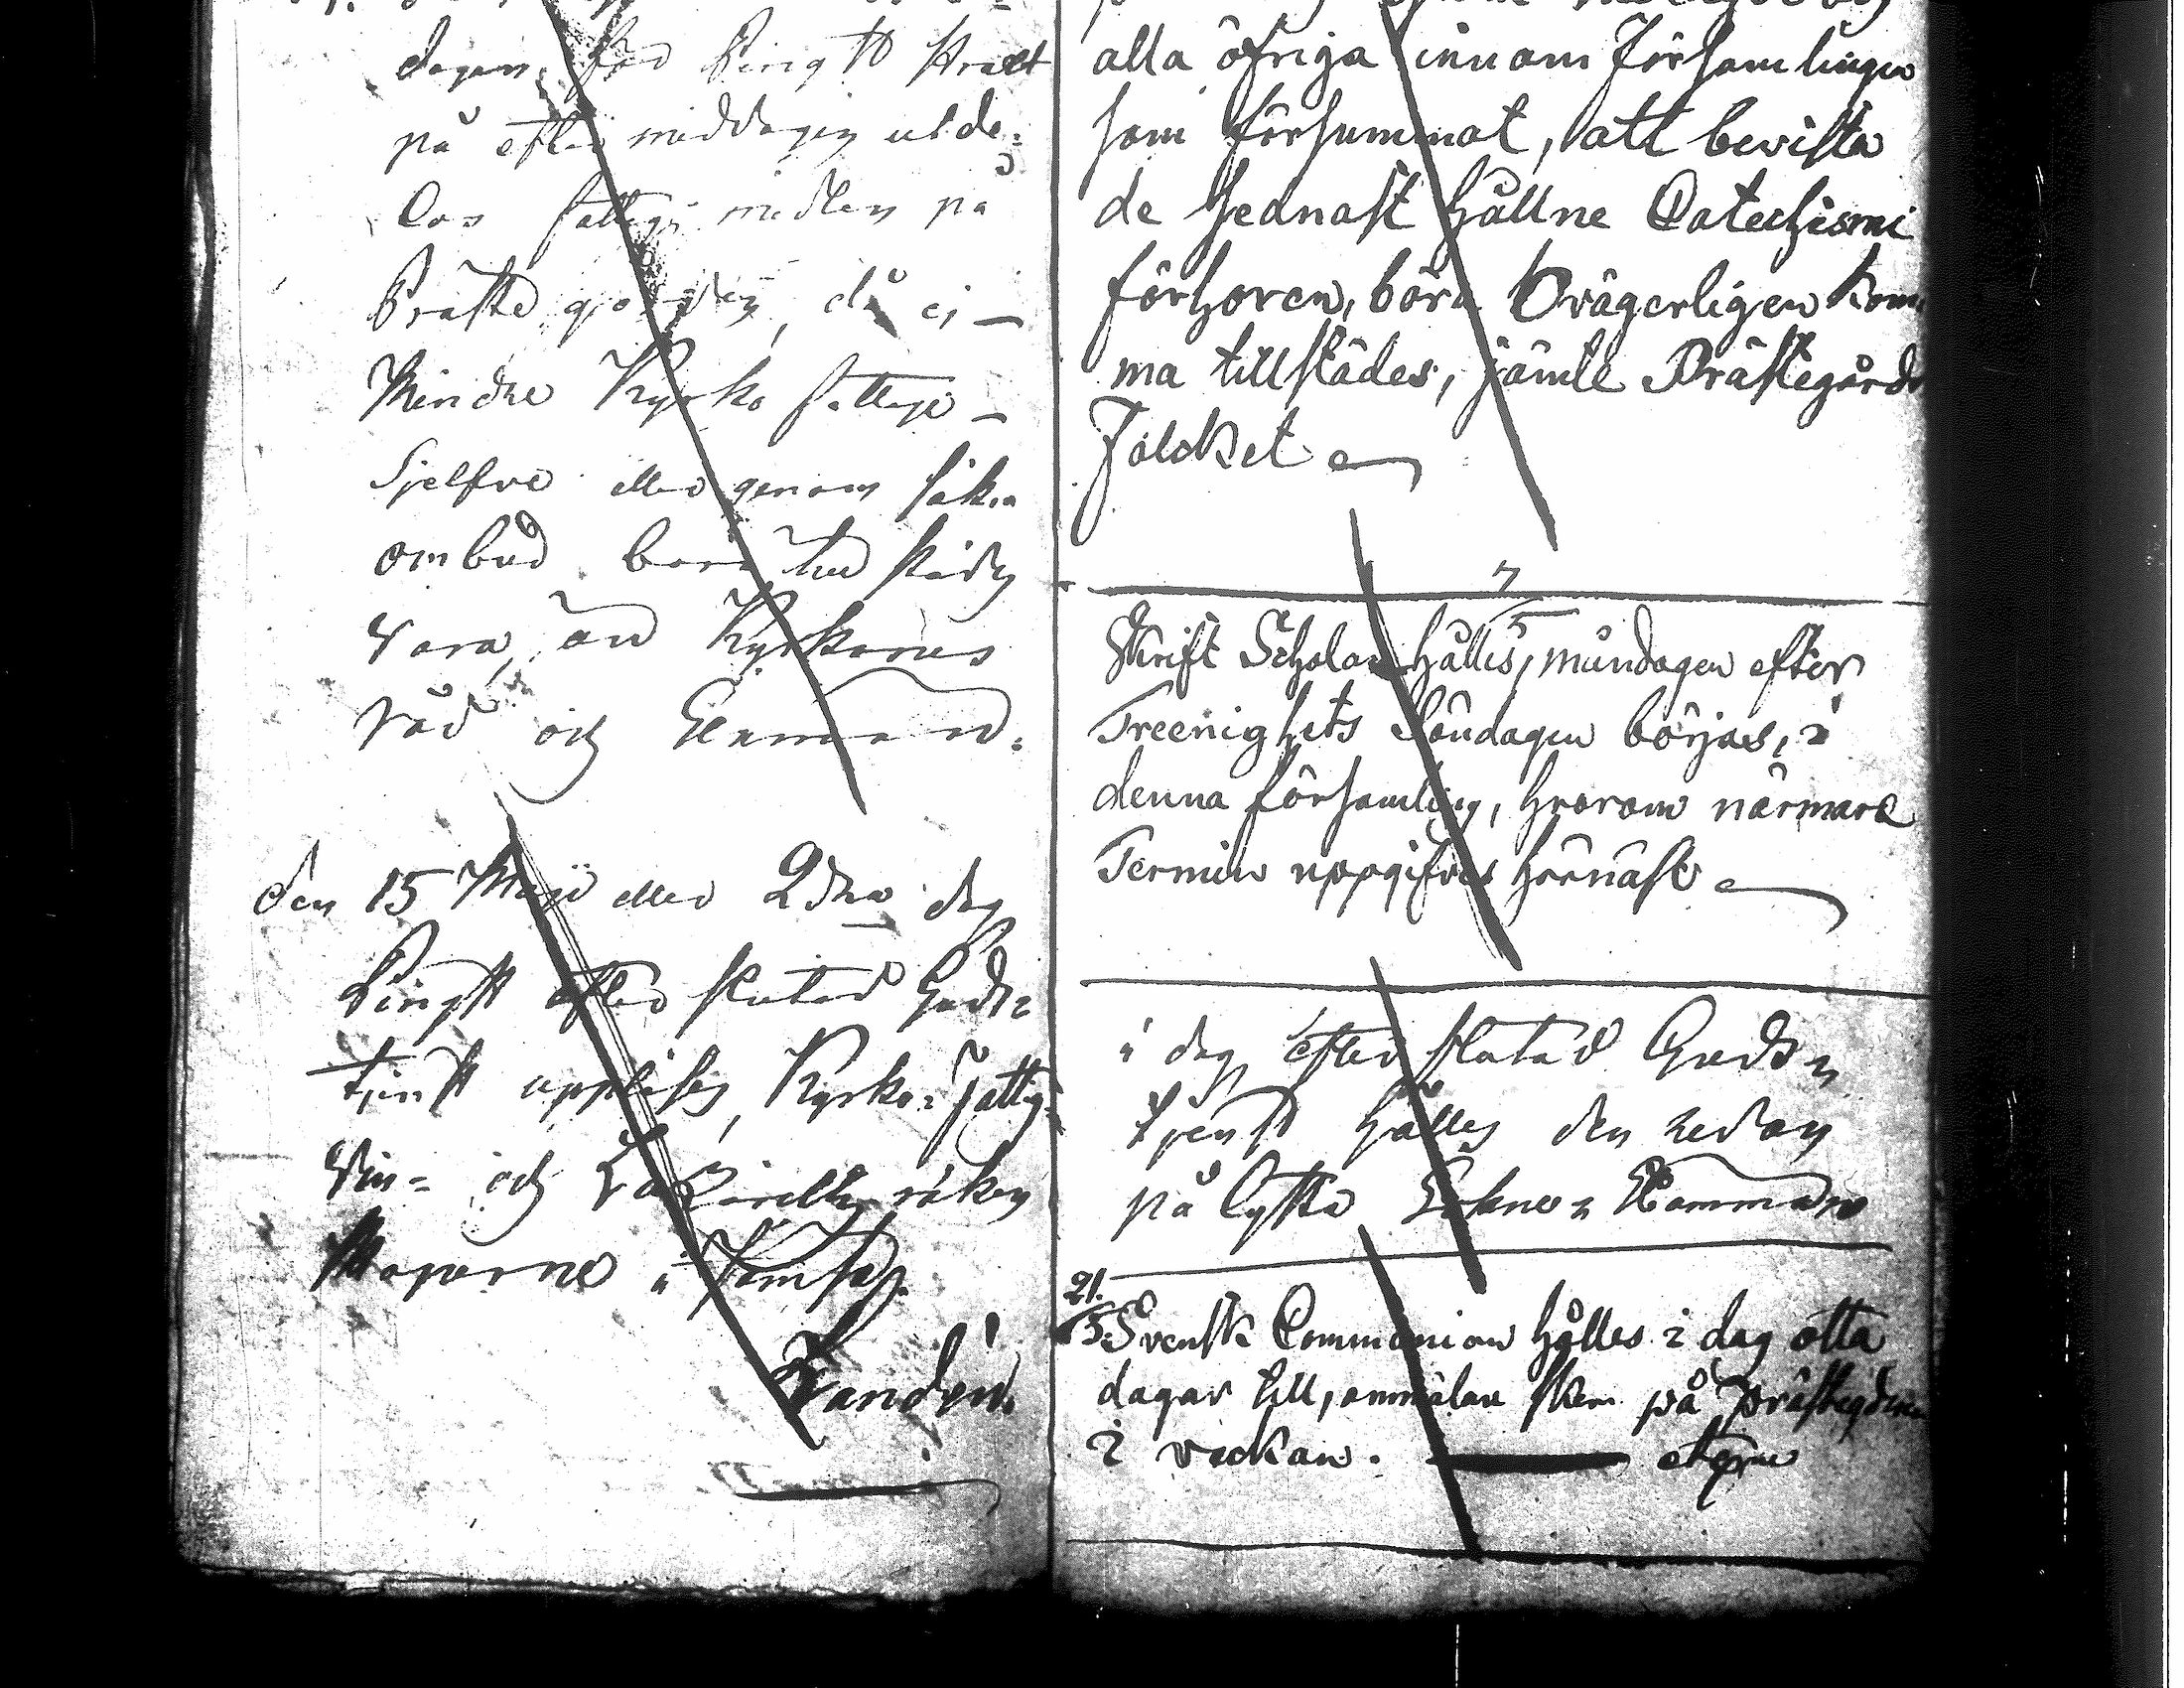 dagen för Pingst
på efter middagen utde-
las fattig medlen på
Präste gården, då ej
Mindre Kyrko fattige
Sjelfve eller genom säkra
ombud böra till städes
Vara, än Kyrkones
råd och
den 15 Maji eller 2dra dag
Pingst efter slutad Guds
tjenst uppläses, Kyrko- Fattig-
Vin- och Lazaretts räken
skaperne i
alla öfriga innom Församlingen
som försummat, att bevista
de sednast hållne Catechismi
förhören, böra Ovägerligen kom
ma tillstädes, jämte Prästegårds
Folcket
7
5
Skrift Scholan hålles, måndagen efter
Treenighets Söndagen börjas, i
denna församling, hvarom närmare
Termin uppgifves härnäst
i dag efter slutad Guds
tjenst hålles den redan
på lyste Sockne
21.
5. Svensk Communion hålles i dag otta
dagar till, anmälan sker på
i veckan.